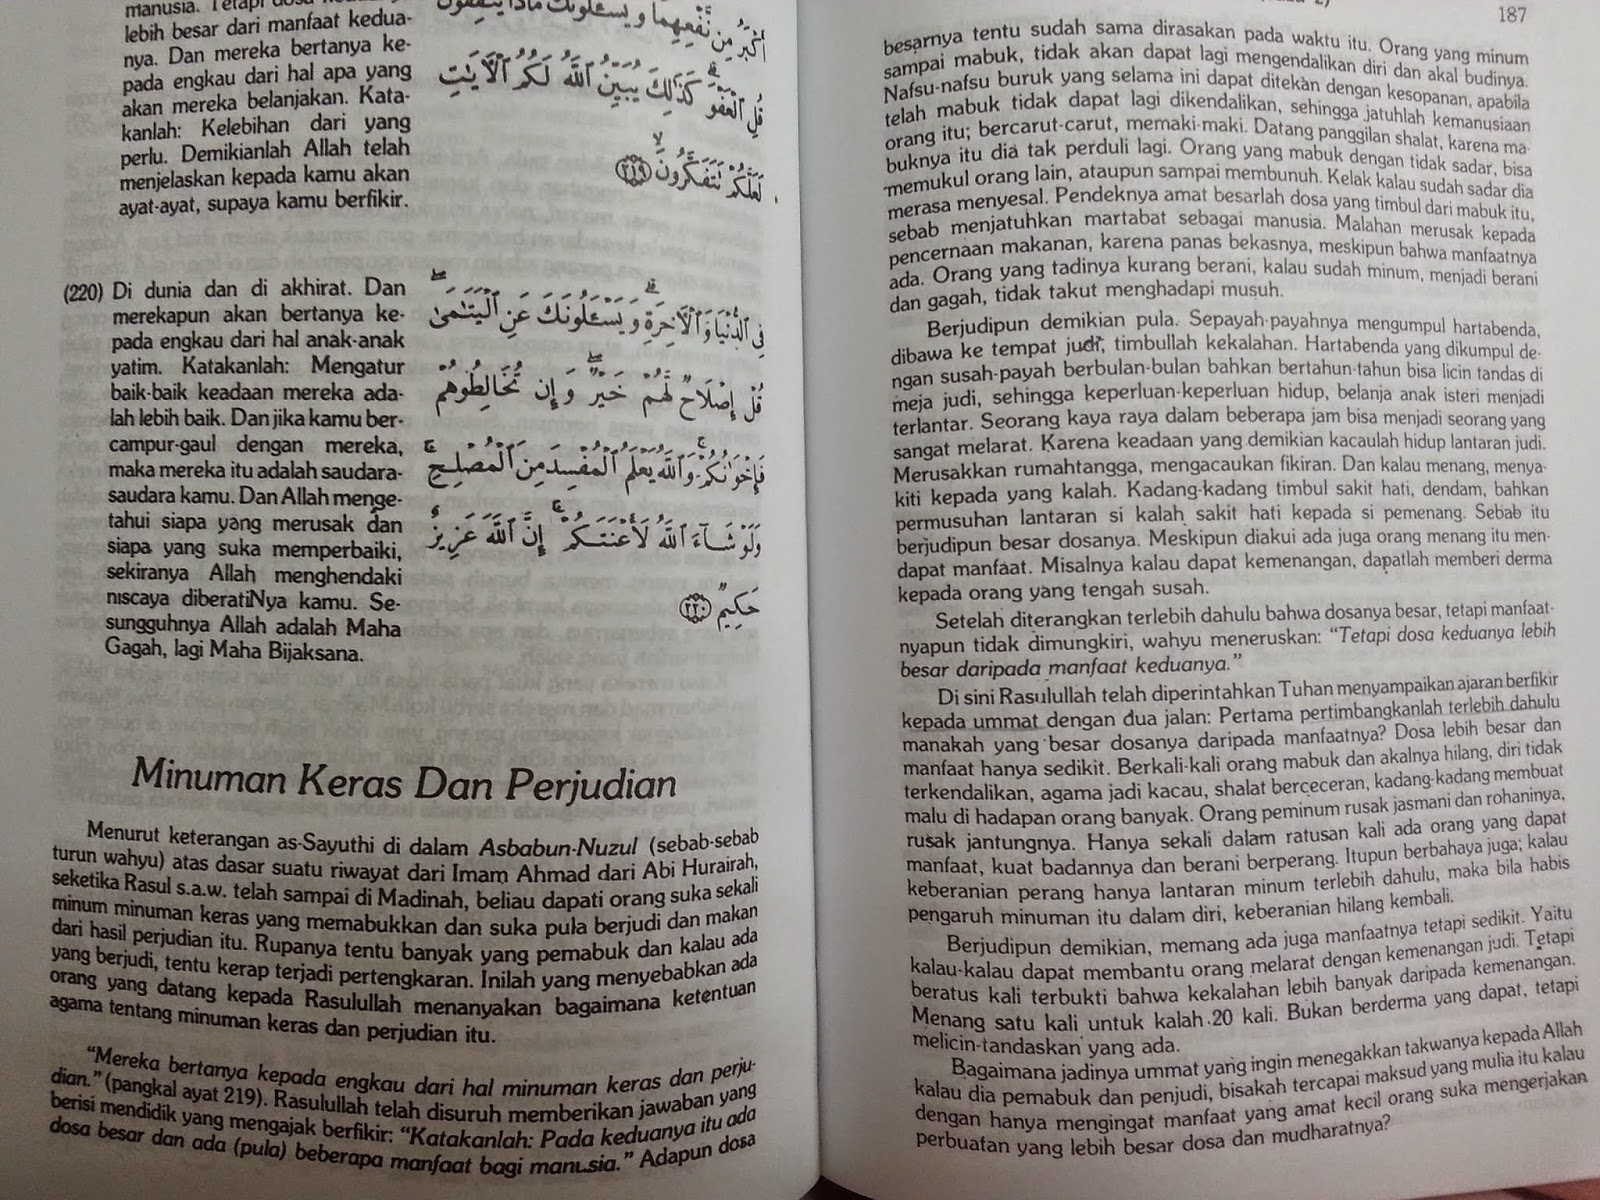 manusia. Tetapi dosa
lebih besar dari manfaat kedua-
nya. Dan mereka bertanya ke-
pada engkau dari hal apa yang
akan mereka belanjakan. Kata-
kanlah: Kelebihan dari yang
perlu. Demikianlah Allah telah
menjelaskan kepada kamu akan
ayat-ayat, supaya kamu berfikir.
أَكْبَرُ مِن نَّفْعِهِمَا وَيَسْـَٔلُونَكَ مَاذَا يُنفِقُونَ
قُلِ ٱلْعَفْوَ ۗ كَذَٰلِكَ يُبَيِّنُ ٱللَّهُ لَكُمُ ٱلْءَايَٰتِ
لَعَلَّكُمْ تَتَفَكَّرُونَ ۙ ﴿٢١٩﴾
(220) Di dunia dan di akhirat. Dan
merekapun akan bertanya ke-
pada engkau dari hal anak-anak
yatim. Katakanlah: Mengatur
baik-baik keadaan mereka ada-
lah lebih baik. Dan jika kamu ber-
campur-gaul dengan mereka,
maka mereka itu adalah saudara-
saudara kamu. Dan Allah menge-
tahui siapa yang merusak dan
siapa yang suka memperbaiki,
sekiranya Allah menghendaki
niscaya diberatiNya kamu. Se-
sungguhnya Allah adalah Maha
Gagah, lagi Maha Bijaksana.
فِى ٱلدُّنْيَا وَٱلْءَاخِرَةِ ۗ وَيَسْـَٔلُونَكَ عَنِ ٱلْيَتَٰمَىٰ ۖ
قُلْ إِصْلَاحٌ لَّهُمْ خَيْرٌ ۖ وَإِن تُخَالِطُوهُمْ
فَإِخْوَٰنُكُمْ ۚ وَٱللَّهُ يَعْلَمُ ٱلْمُفْسِدَ مِنَ ٱلْمُصْلِحِ ۚ
وَلَوْ شَآءَ ٱللَّهُ لَأَعْنَتَكُمْ ۚ إِنَّ ٱللَّهَ عَزِيزٌ
حَكِيمٌ ﴿٢٢٠﴾
Minuman Keras Dan Perjudian
Menurut keterangan as-Sayuthi di dalam Asbabun-Nuzul (sebab-sebab
turun wahyu) atas dasar suatu riwayat dari Imam Ahmad dari Abi Hurairah,
seketika Rasul s.a.w. telah sampai di Madinah, beliau dapati orang suka sekali
minum minuman keras yang memabukkan dan suka pula berjudi dan makan
dari hasil perjudian itu. Rupanya tentu banyak yang pemabuk dan kalau ada
yang berjudi, tentu kerap terjadi pertengkaran. Inilah yang menyebabkan ada
orang yang datang kepada Rasulullah menanyakan bagaimana ketentuan
agama tentang minuman keras dan perjudian itu.
"Mereka bertanya kepada engkau dari hal minuman keras dan perju-
dian." (pangkal ayat 219). Rasulullah telah disuruh memberikan jawaban yang
berisi mendidik yang mengajak berfikir: "Katakanlah: Pada keduanya itu ada
dosa besar dan ada (pula) beberapa manfaat bagi manusia." Adapun dosa
187
besarnya tentu sudah sama dirasakan pada waktu itu. Orang yang minum
sampai mabuk, tidak akan dapat lagi mengendalikan diri dan akal budinya.
Nafsu-nafsu buruk yang selama ini dapat ditekan dengan kesopanan, apabila
telah mabuk tidak dapat lagi dikendalikan, sehingga jatuhlah kemanusiaan
orang itu; bercarut-carut, memaki-maki. Datang panggilan shalat, karena ma-
buknya itu dia tak perduli lagi. Orang yang mabuk dengan tidak sadar, bisa
memukul orang lain, ataupun sampai membunuh. Kelak kalau sudah sadar dia
merasa menyesal. Pendeknya amat besarlah dosa yang timbul dari mabuk itu,
sebab menjatuhkan martabat sebagai manusia. Malahan merusak kepada
pencernaan makanan, karena panas bekasnya, meskipun bahwa manfaatnya
ada. Orang yang tadinya kurang berani, kalau sudah minum, menjadi berani
dan gagah, tidak takut menghadapi musuh.
Berjudipun demikian pula. Sepayah-payahnya mengumpul hartabenda,
dibawa ke tempat judi, timbullah kekalahan. Hartabenda yang dikumpul de-
ngan susah-payah berbulan-bulan bahkan bertahun-tahun bisa licin tandas di
meja judi, sehingga keperluan-keperluan hidup, belanja anak isteri menjadi
terlantar. Seorang kaya raya dalam beberapa jam bisa menjadi seorang yang
sangat melarat. Karena keadaan yang demikian kacaulah hidup lantaran judi.
Merusakkan rumahtangga, mengacaukan fikiran. Dan kalau menang, menya-
kiti kepada yang kalah. Kadang-kadang timbul sakit hati, dendam, bahkan
permusuhan lantaran si kalah sakit hati kepada si pemenang. Sebab itu
berjudipun besar dosanya. Meskipun diakui ada juga orang menang itu men-
dapat manfaat. Misalnya kalau dapat kemenangan, dapatlah memberi derma
kepada orang yang tengah susah.
Setelah diterangkan terlebih dahulu bahwa dosanya besar, tetapi manfaat-
nyapun tidak dimungkiri, wahyu meneruskan: "Tetapi dosa keduanya lebih
besar daripada manfaat keduanya."
Di sini Rasulullah telah diperintahkan Tuhan menyampaikan ajaran berfikir
kepada ummat dengan dua jalan: Pertama pertimbangkanlah terlebih dahulu
manakah yang besar dosanya daripada manfaatnya? Dosa lebih besar dan
manfaat hanya sedikit. Berkali-kali orang mabuk dan akalnya hilang, diri tidak
terkendalikan, agama jadi kacau, shalat berceceran, kadang-kadang membuat
malu di hadapan orang banyak. Orang peminum rusak jasmani dan rohaninya,
rusak jantungnya. Hanya sekali dalam ratusan kali ada orang yang dapat
manfaat, kuat badannya dan berani berperang. Itupun berbahaya juga; kalau
keberanian perang hanya lantaran minum terlebih dahulu, maka bila habis
pengaruh minuman itu dalam diri, keberanian hilang kembali.
Berjudipun demikian, memang ada juga manfaatnya tetapi sedikit. Yaitu
kalau-kalau dapat membantu orang melarat dengan kemenangan judi. Tetapi
beratus kali terbukti bahwa kekalahan lebih banyak daripada kemenangan.
Menang satu kali untuk kalah 20 kali. Bukan berderma yang dapat, tetapi
melicin-tandaskan yang ada.
Bagaimana jadinya ummat yang ingin menegakkan takwanya kepada Allah
kalau dia pemabuk dan penjudi, bisakah tercapai maksud yang mulia itu kalau
dengan hanya mengingat manfaat yang amat kecil orang suka mengerjakan
perbuatan yang lebih besar dosa dan mudharatnya?